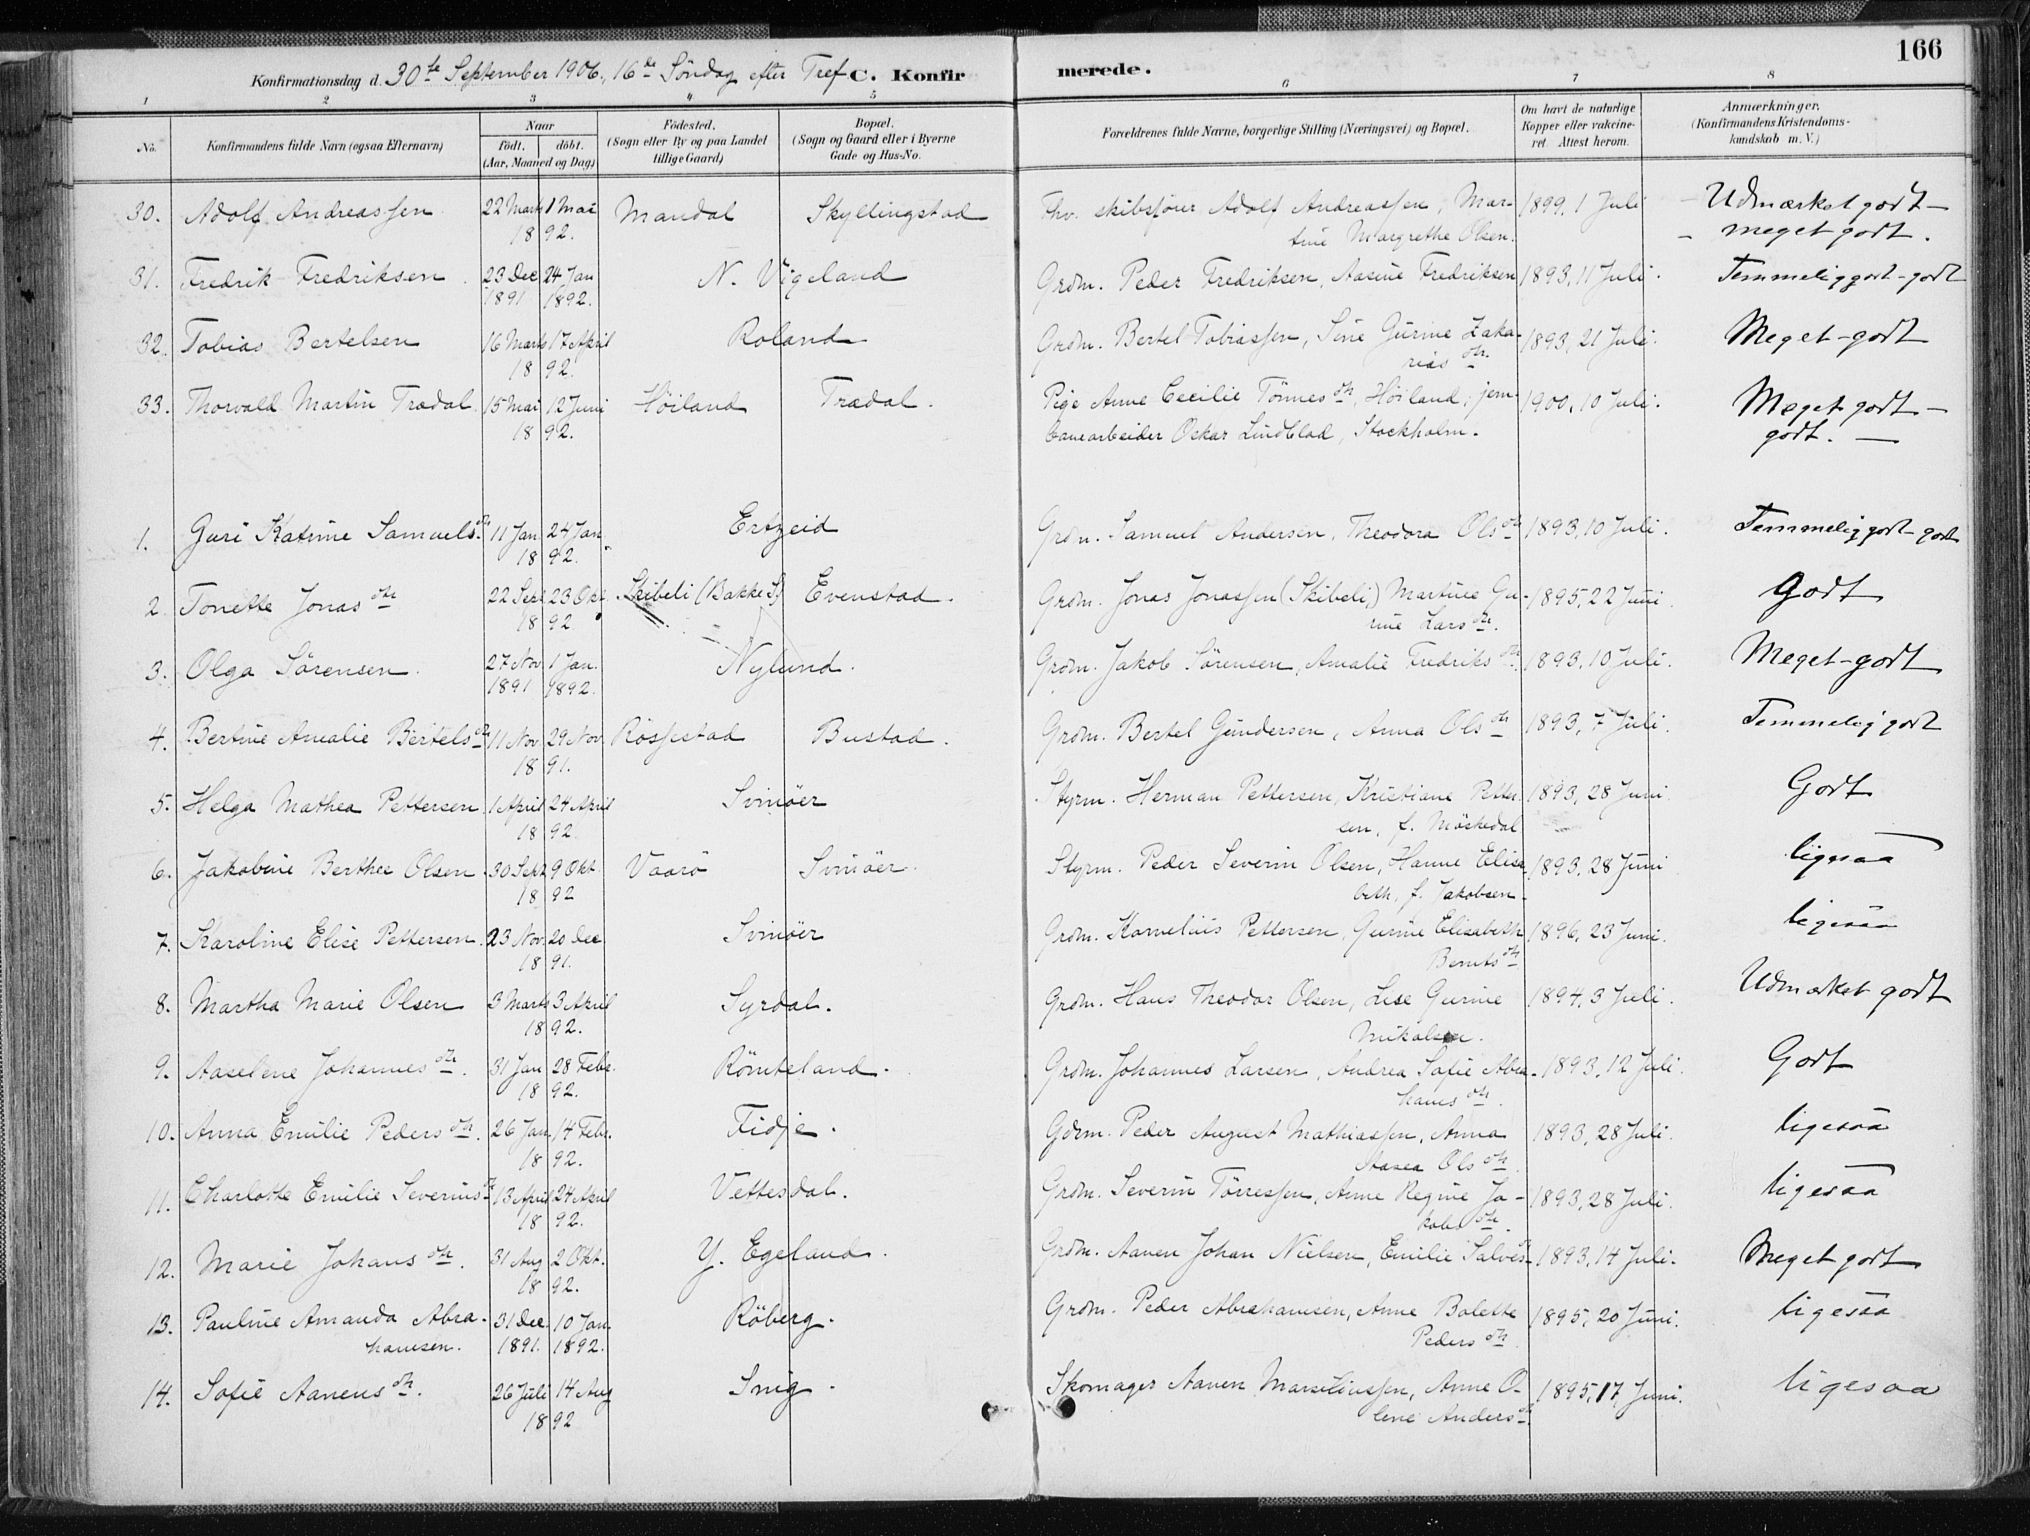 166
Konfirmationsdag d. 30te September 1906, 16de Söndag efter Tref C. Konfirmerede.
1 2 3 4 5 6 7 8
No.
Konfirmandens fulde Navn (ogsaa Efternavn)
Naar
födt. döbt.
(Aar, Maaned og Dag)
Födested.
(Sogn eller By og paa Landet
tillige Gaard)
Bopæl.
(Sogn og Gaard eller i Byerne
Gade og Hus-No.
Forældrenes fulde Navne, borgerlige Stilling (Næringsvei) og Bopæl.
Om havt de naturlige
Kopper eller vakcine-
ret. Attest herom.
Anmærkninger.
(Konfirmandens Kristendoms-
kundskab m. V.)
30. Adolf Andreassen 22 Marts 1 Mai Mandal Skyllingstad Fhv. skibsförer Adolf Andreassen, Mar- 1899, 1 Juli - Udmærket godt -
1892. tine Margrethe Olsen. - meget godt.
31. Fredrik Fredriksen. 23 Dec 24 Jan N. Vigeland Grdm. Peder Fredriksen, Aasine Fredriksen 1893, 11 Juli. Temmelig godt - godt
1891 1892.
32. Tobias Bertelsen 16 Marts 17 April Roland Grdm. Bertel Tobiassen, Sine Gurine Zaka- 1893, 21 Juli. Meget - godt
1892. rias dtr.
33. Thorvald Martin Trædal 15 Mai 12 Juni Höiland Trædal. Pige Anne Cecilie Tönnes dtr, Höiland, jern- 1900, 10 Juli. Meget godt -
1892. banearbeider Oskar Lindblad, Stockholm. godt. -
1. Guri Katrine Samuels dtr 11 Jan. 24 Jan. Ertzeid Grdm. Samuel Andersen, Theodora Ols dtr 1893, 10 Juli. Temmelig godt - godt
1892.
2. Tonette Jonas dtr 22 Sept 23 Okt. Skibeli (Bakke S) Evenstad. Grdm. Jonas Jonassen (Skibeli,) Martine Gu- 1895, 22 Juni. Godt
1892 rine Lars dtr.
3. Olga Sörensen. 27 Nov. 1 Jan. Nylund. Grdm. Jakob Sörensen, Amalie Fredriks dtr. 1893, 10 Juli. Meget - godt
1891 1892.
4. Bertine Amalie Bertels dtr 11 Nov. 29 Nov. Rössestad Bustad. Grdm. Bertel Gundersen, Anna Ols dtr 1893, 7 Juli. Temmelig godt
1891.
5. Helga Mathea Pettersen 1 April 24 April Svinöer Styrm. Herman Pettersen, Kristiane Petter- 1893, 28 Juni. Godt
1892. sen, f. Möskedal
6. Jakobine Berthea Olsen. 30 Sept 9 Okt. Vaarö Svinöer. Styrm. Peder Severin Olsen, Hanne Elisa 1893, 28 Juni ligesaa
1892 beth, f. Jakobsen
7. Karoline Elise Pettersen. 23 Nov. 20 Dec Svinöer Grdm. Kornelius Pettersen, Gurine Elisabeth 1896, 23 Juni. ligesaa
1891. Bernts dtr
8. Martha Marie Olsen 3 Marts 3 April Syrdal. Grdm. Hans Theodor Olsen, Lise Gurine 1894, 3 Juli. Udmærket godt
1892. Mikalsen.
9. Aaselene Johannes dtr. 31 Jan 28 Febr. Römteland. Grdm. Johannes Larsen, Andrea Sofie Abra- 1893, 12 Juli. Godt
1892. hams dtr.
10. Anna Emilie Peders dtr. 26 Jan. 14 Febr. Fidje. Gdrm. Peder August Mathiassen, Anna 1893, 28 Juli. ligesaa
1892. Aasea Ols dtr.
11. Charlotte Emilie Severins dtr 13 April 24 April Vettesdal. Grdm. Severin Törressen, Anne Regine Ja- 1893, 28 Juli. ligesaa
1892. kobs dtr.
12. Marie Johans dtr. 31 Aug 2 Okt. Y. Egeland. Grdm. Aanen Johan Nielsen, Emilie Salves dtr 1893, 14 Juli. Meget godt
1892.
13. Pauline Amanda Abra- 31 Dec. 10 Jan. Röberg. Grdm. Peder Abrahamsen, Anne Bolette 1895, 20 Juni. ligesaa
hamsen. 1891. 1892. Peders dtr.
14. Sofie Aanens dtr. 26 Juli 14 Aug Snig. Skomager Aanen Marseliussen, Anne O- 1895, 17 Juni. ligesaa
1892 lene Anders dtr.